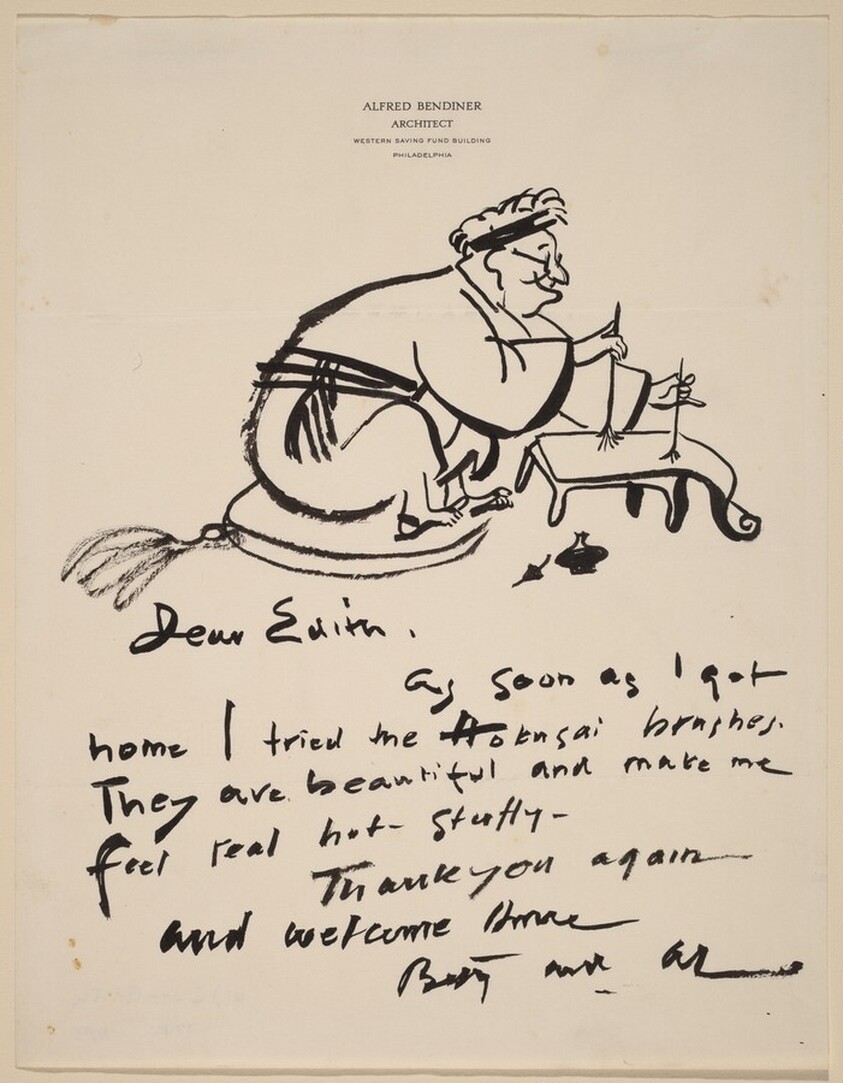 ALFRED BENDINER
ARCHITECT
WESTERN SAVING FUND BUILDING
PHILADELPHIA
Dear Edith.
as soon as I got
home I tried the Hokusai brushes.
They are beautiful and make me
feel real hot-stuffy-
Thank you again
and welcome home
Betty and Al